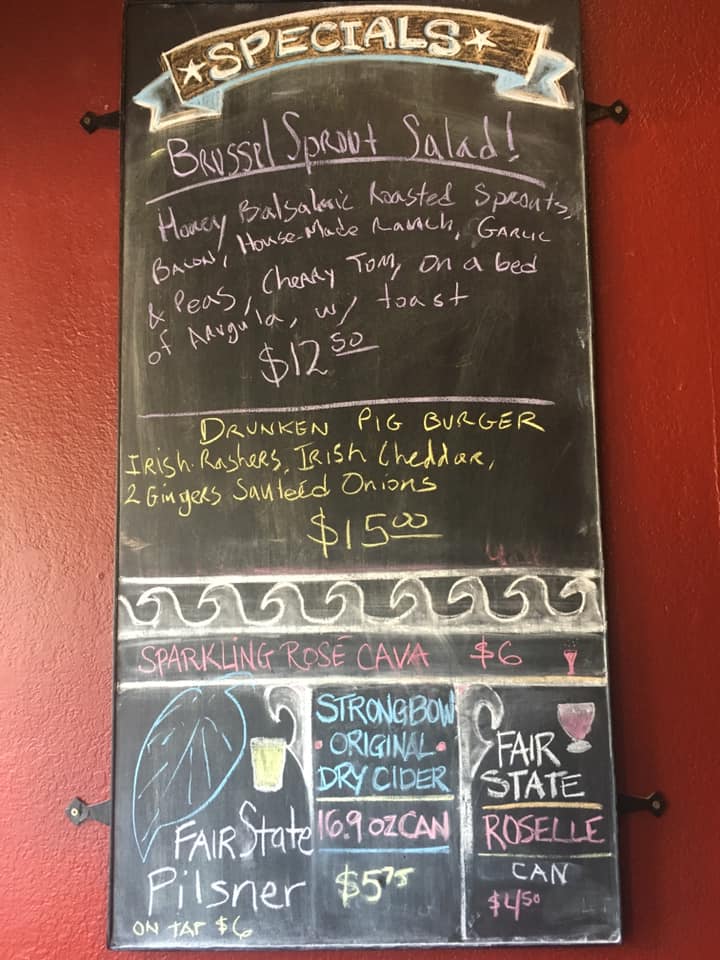 ★SPECIALS★
Brussel Sprout Salad!
Honey Balsalmic Roasted Sprouts,
Bacon, House-Made Ranch, Garlic
& Peas, Cherry Tom, on a bed
of Arugula, w/ toast
$12 50
DRUNKEN PIG BURGER
Irish Rashers, Irish Cheddar,
2 Gingers Sauteéd Onions
$15 00
SPARKLING ROSÉ CAVA $6
FAIR State
Pilsner
ON TAP $6
STRONGBOW
ORIGINAL
DRY CIDER
16.9 OZ CAN
$5 75
FAIR
STATE
ROSELLE
CAN
$4 50